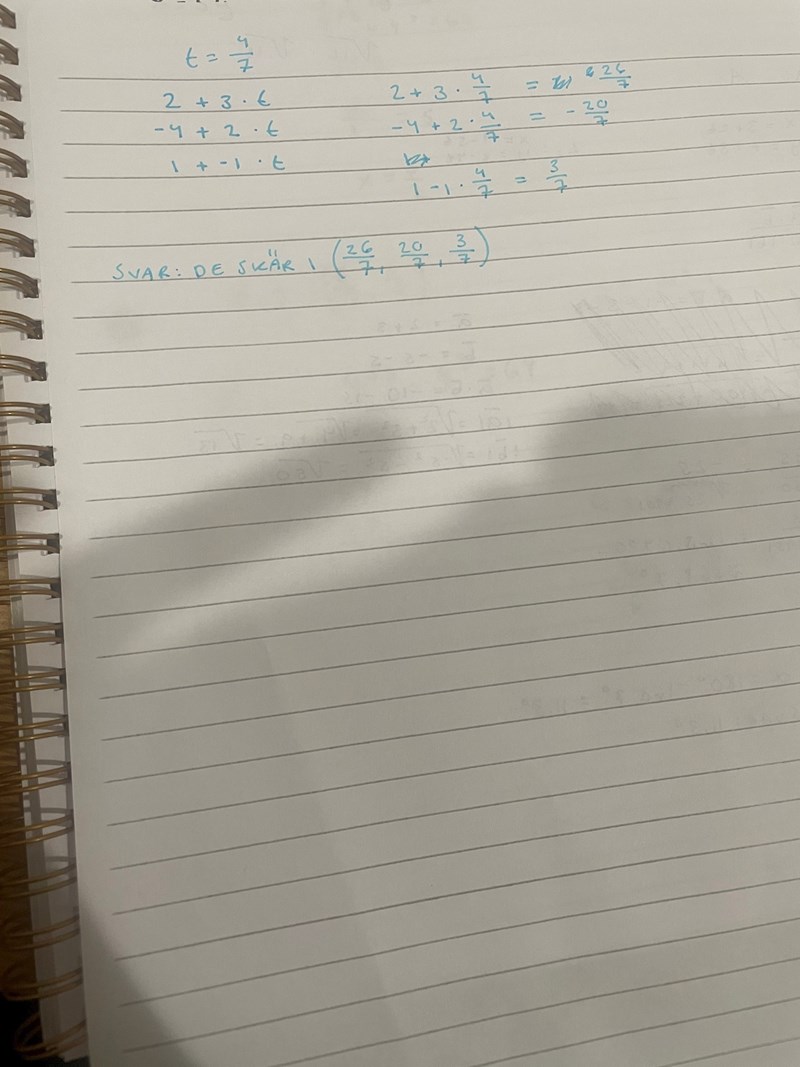 t = 4/7
2 + 3 · t    2 + 3 · 4/7 = 26/7
-4 + 2 · t    -4 + 2 · 4/7 = - 20/7
1 + -1 · t
1 - 1 · 4/7 = 3/7
SVAR: DE SKÄR I (26/7, 20/7, 3/7)